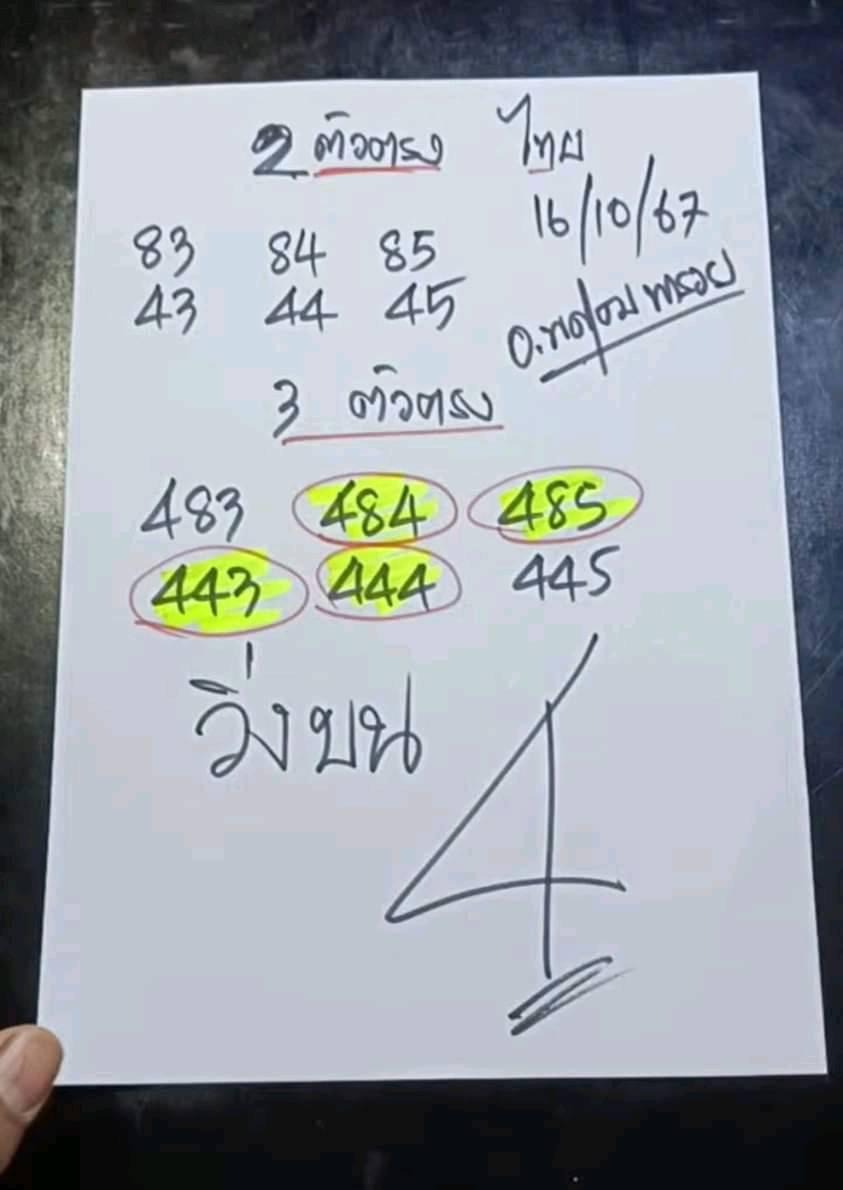 2 ตัวตรง ไทย
16/10/67
83 84 85
43 44 45
3 ตัวตรง
483 484 485
443 444 445
วิ่งบน 4